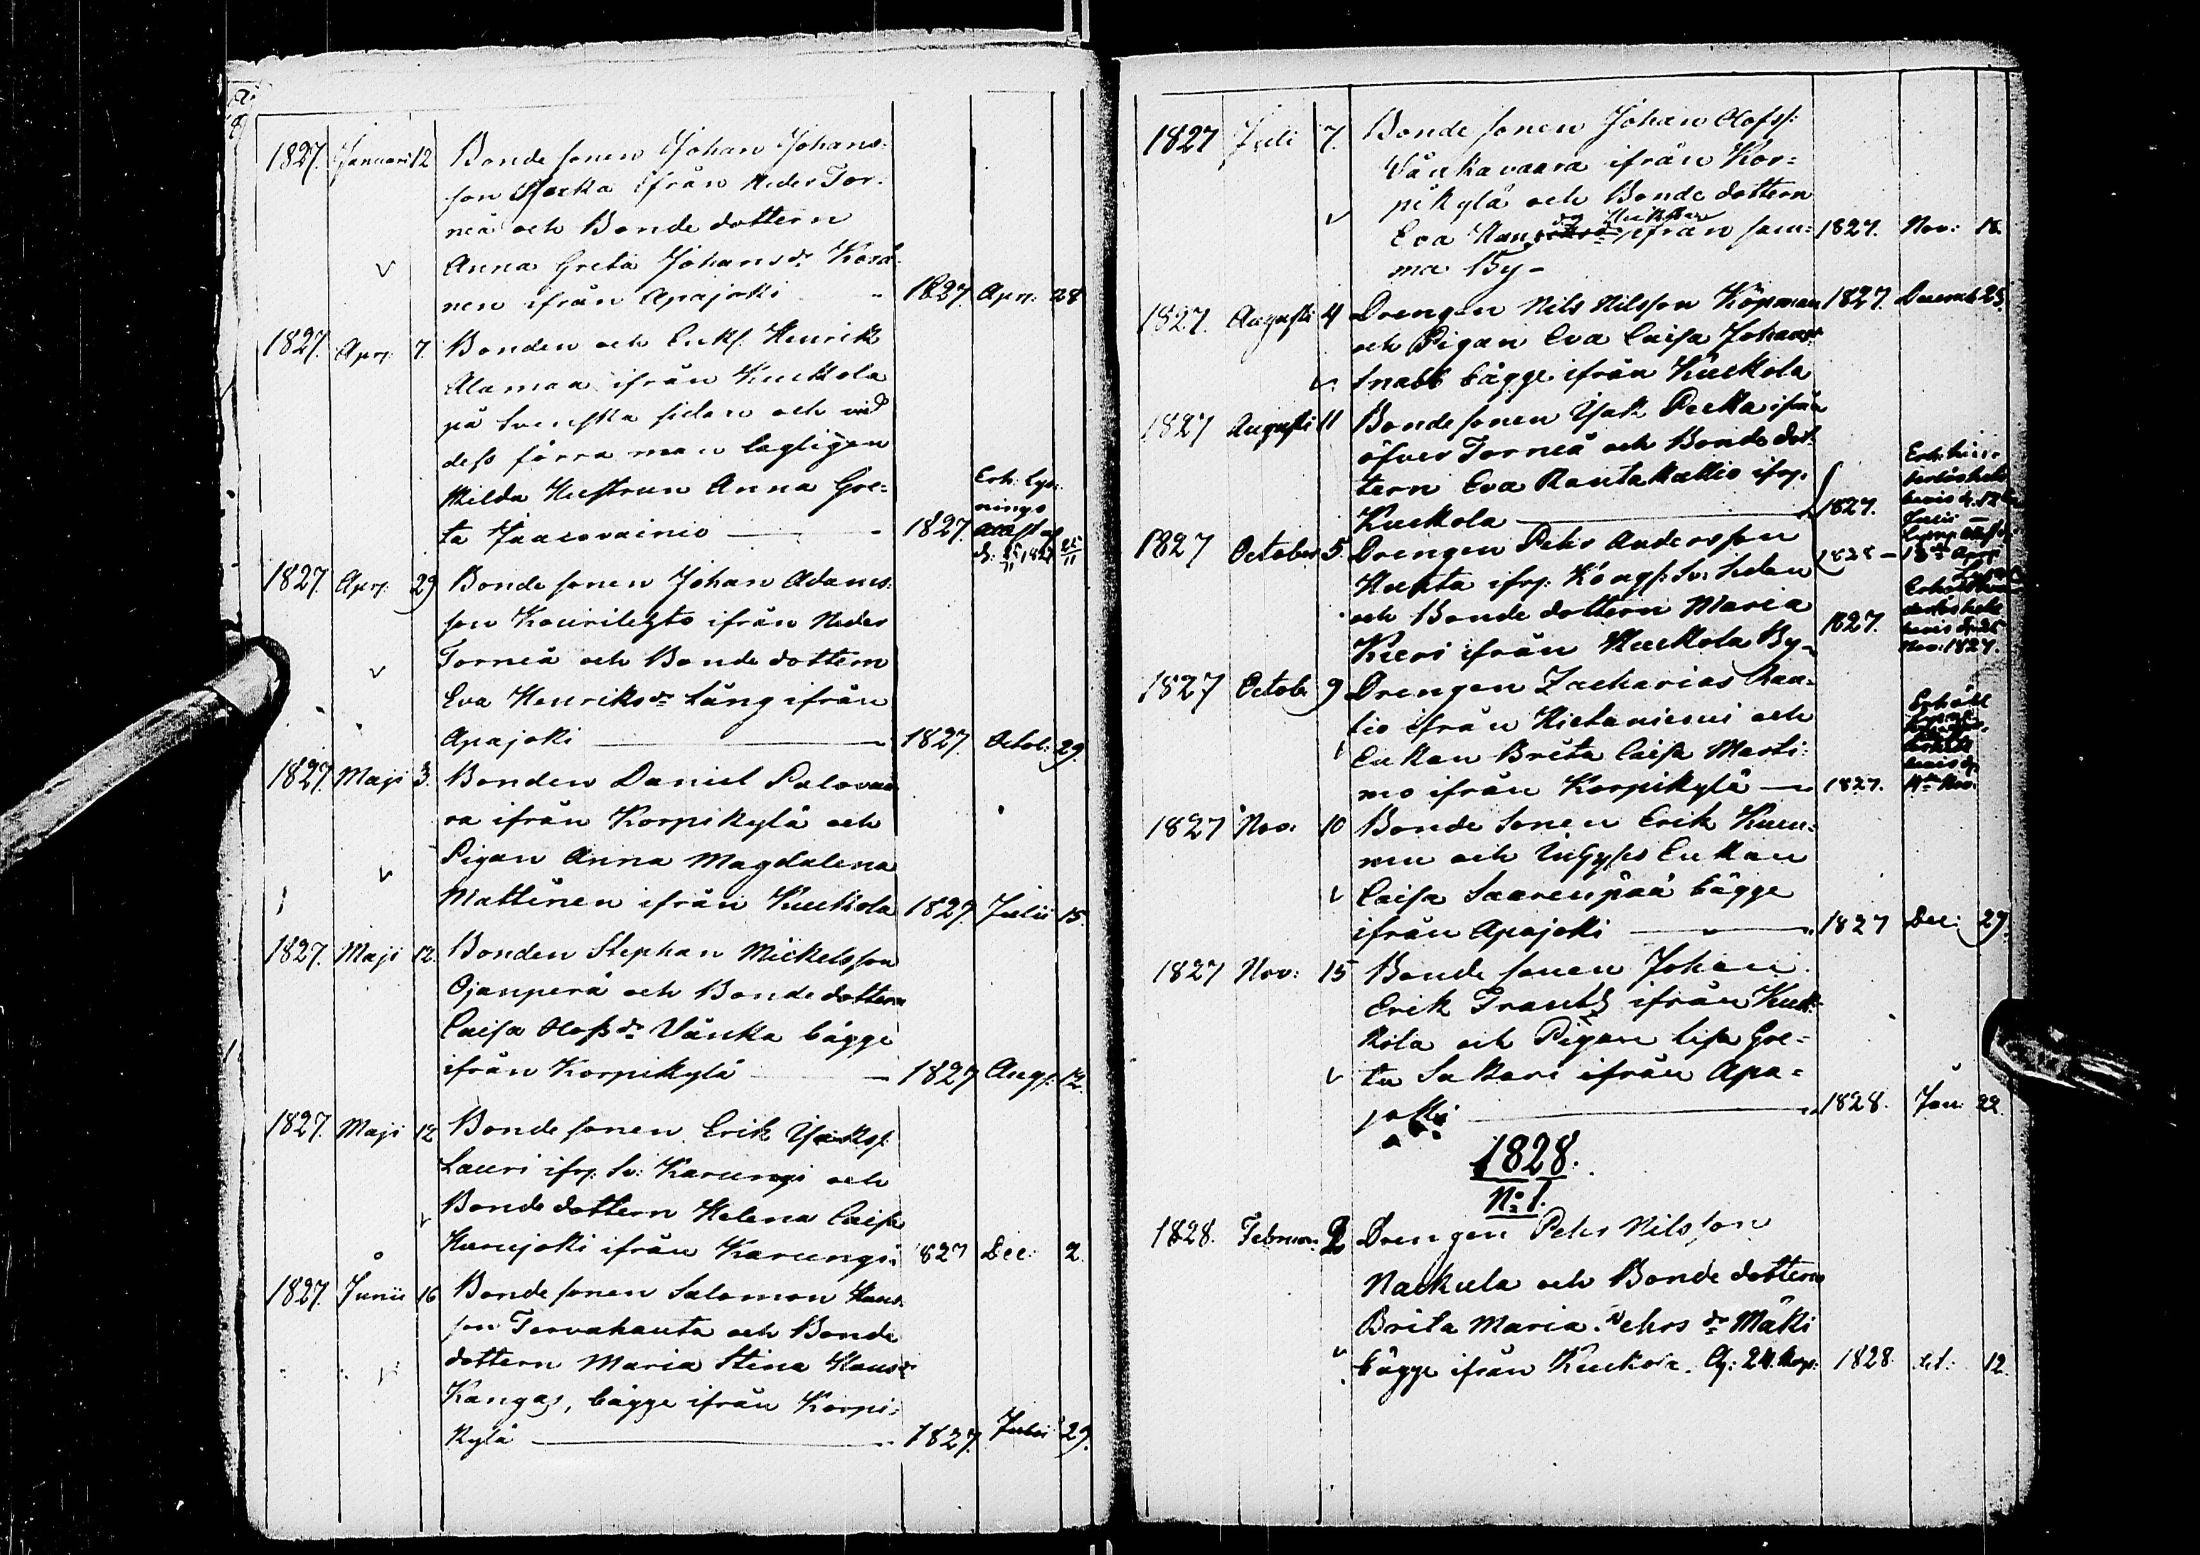 1827. Januari 12 Bonde sonen Johan Johans-
son ifrån Neder Tor-
neå och Bonde dottern
Anna Greta Johansdr
nen ifrån Apajoki 1827. Apr: 28
1827. Apr: 7. Bonden och Enkl. Henrik
Alamaa ifrån Kuckola
på Svenska sidan och vid
dess förra man lagligen
skilda Hustrun Anna Gre-
ta Jaacovainio 1827.
Erh: Lys-
nings
attest af
d: 25/11 1827 25/11
1827. Apr: 29 Bonde sonen Johan Adams-
son Kourilehto ifrån Neder
Torneå och Bonde dottern
Eva Henriksdr Lång ifrån
Apajoki 1827. Octob: 29.
1827. Maji 3. Bonden Daniel Palovaa
ra ifrån Korpikylä och
Pigan Anna Magdalena
Mattinen ifrån Kuckola 1827. Julii 15.
1827. Maji 12. Bonden Stephan Mickelsson
Ojanperä och Bonde dottern
Caisa Olofsdr Vänka bägge
ifrån Korpikylä 1827 Aug: 12.
1827. Maji 12 Bonde sonen Erik Isaks:
Lauri ifr: Sv: Karungi och
Bonde dottern Helena Caisa
Karujoki ifrån Karungi. 1827 Dec: 2.
1827. Junii 16 Bonde sonen Salomon Hans-
son Tervahauta och Bonde
dottern Maria Stina Hansdr
Kangas, bägge ifrån Korpi-
kylä 1827. Julii 29.
1827 Juli 7. Bonde sonen Johan Olofss:
Vänkavaara ifrån Kor-
pikylä och Bonde dottern
Eva ifrån sam- 1827. Nov: 18.
ma By-
1827. Augusti 4 Drengen Nils Nilsson Köpman 1827. Decemb 25.
och Pigan Eva Caisa Johansdr
Snabb bägge ifrån Kuckola
1827 Augusti 11 Bonde sonen Isak Pecka ifrån
öfver Torneå och Bonde dot-
tern Eva Rautakallio ifr:
Kuckola 1827.
1827 October 5. Drengen Pehr Andersson 1828 -
Hauta ifr: Kongs: Sv: Sidan
och Bonde dottern Maria
Kieri ifrån Kuckola By- 1827.
Nov: 1827.
1827 Octob: 9 Drengen Zacharias Rau-
tio ifrån Hietaniemi och
Enkan Brita Caisa Marti-
mo ifrån Korpikylä 1827.
1827 Nov: 10 Bonde sonen Erik
och Enkan
Caisa Saarenpää bägge
ifrån Apajoki 1827 Dec: 29.
1827 Nov: 15 Bonde sonen Johan
Erik Frantz ifrån Kuc-
kola och Pigan Lisa Gre-
ta Sakari ifrån Apa-
jocki 1828. Jan: 22.
1828.
No: 1.
1828. Februar: 2 Drengen Pehr Nilsson
Nackula och Bonde dottern
Brita Maria Pehrsdr Mäki
bägge ifrån Kuckola. 24. Kop: 1828. 12.